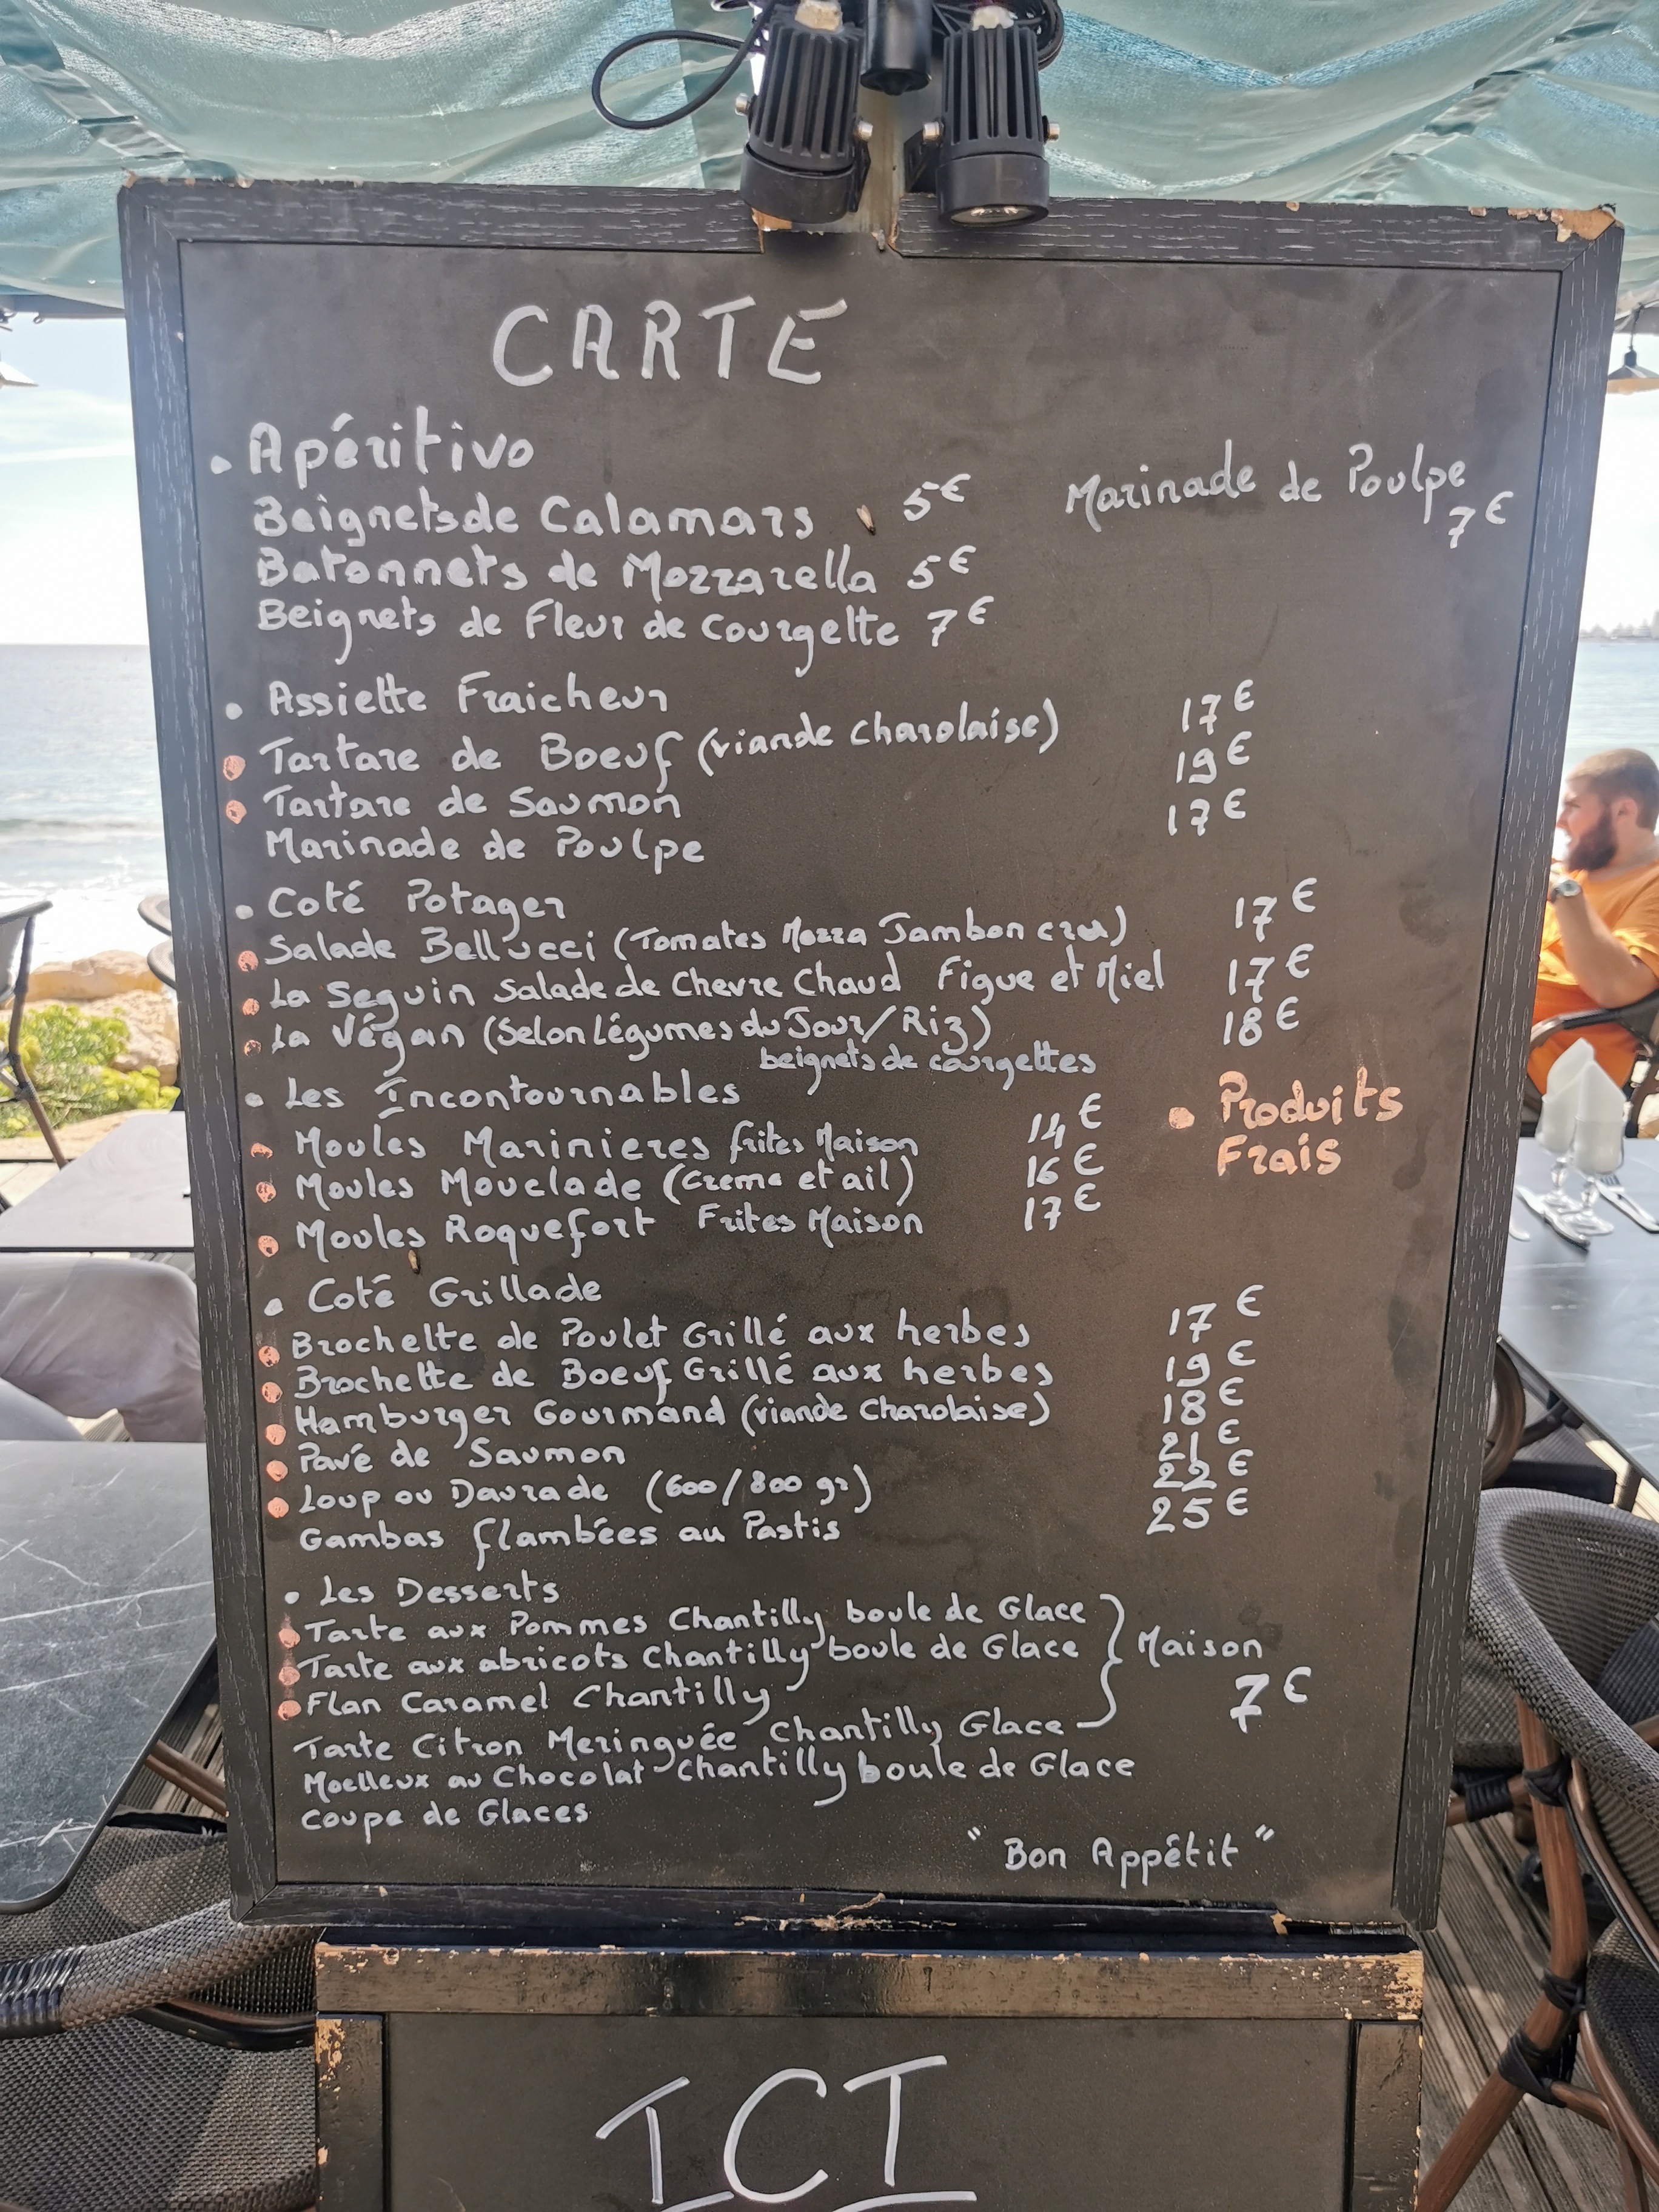 CARTE
• Apéritivo
Beignets de Calamars 5€
Marinade de Poulpe
7€
Batonnets de Mozzarella 5€
Beignets de Fleur de Courgette 7€
• Assiette Fraicheur
Tartare de Boeuf (viande charolaise) 17€
Tartare de Saumon 19€
Marinade de Poulpe 17€
• Coté Potager
Salade Bellucci (Tomates Mozza Jambon cru) 17€
La Seguin Salade de Chevre Chaud Figue et Miel 17€
La Végan (Selon Légumes du Jour/Riz) 18€
beignets de courgettes
• Les Incontournables
Moules Marinieres frites Maison 14€
Moules Mouclade (Creme et ail) 16€
Moules Roquefort Frites Maison 17€
• Produits
Frais
• Coté Grillade
Brochette de Poulet Grillé aux herbes 17€
Brochette de Boeuf Grillé aux herbes 19€
Hamburger Gourmand (viande Charolaise) 18€
Pavé de Saumon 21€
Loup ou Daurade (600/800 gr) 22€
Gambas flambées au Pastis 25€
• Les Desserts
Tarte aux Pommes Chantilly boule de Glace
Tarte aux abricots Chantilly boule de Glace
Maison
Flan Caramel Chantilly
7€
Tarte Citron Meringuée Chantilly Glace
Moelleux au Chocolat Chantilly boule de Glace
coupe de Glaces
"Bon Appêtit"
ICI